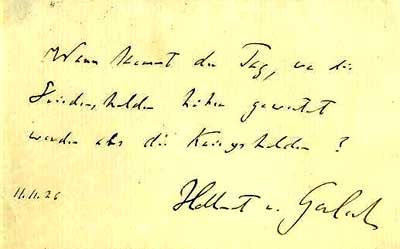 Wann kommt der Tag, wo die
Friedenshelden höher gewertet
werden als die Kriegshelden?
11.11.26
Hellmut v. Gerlach